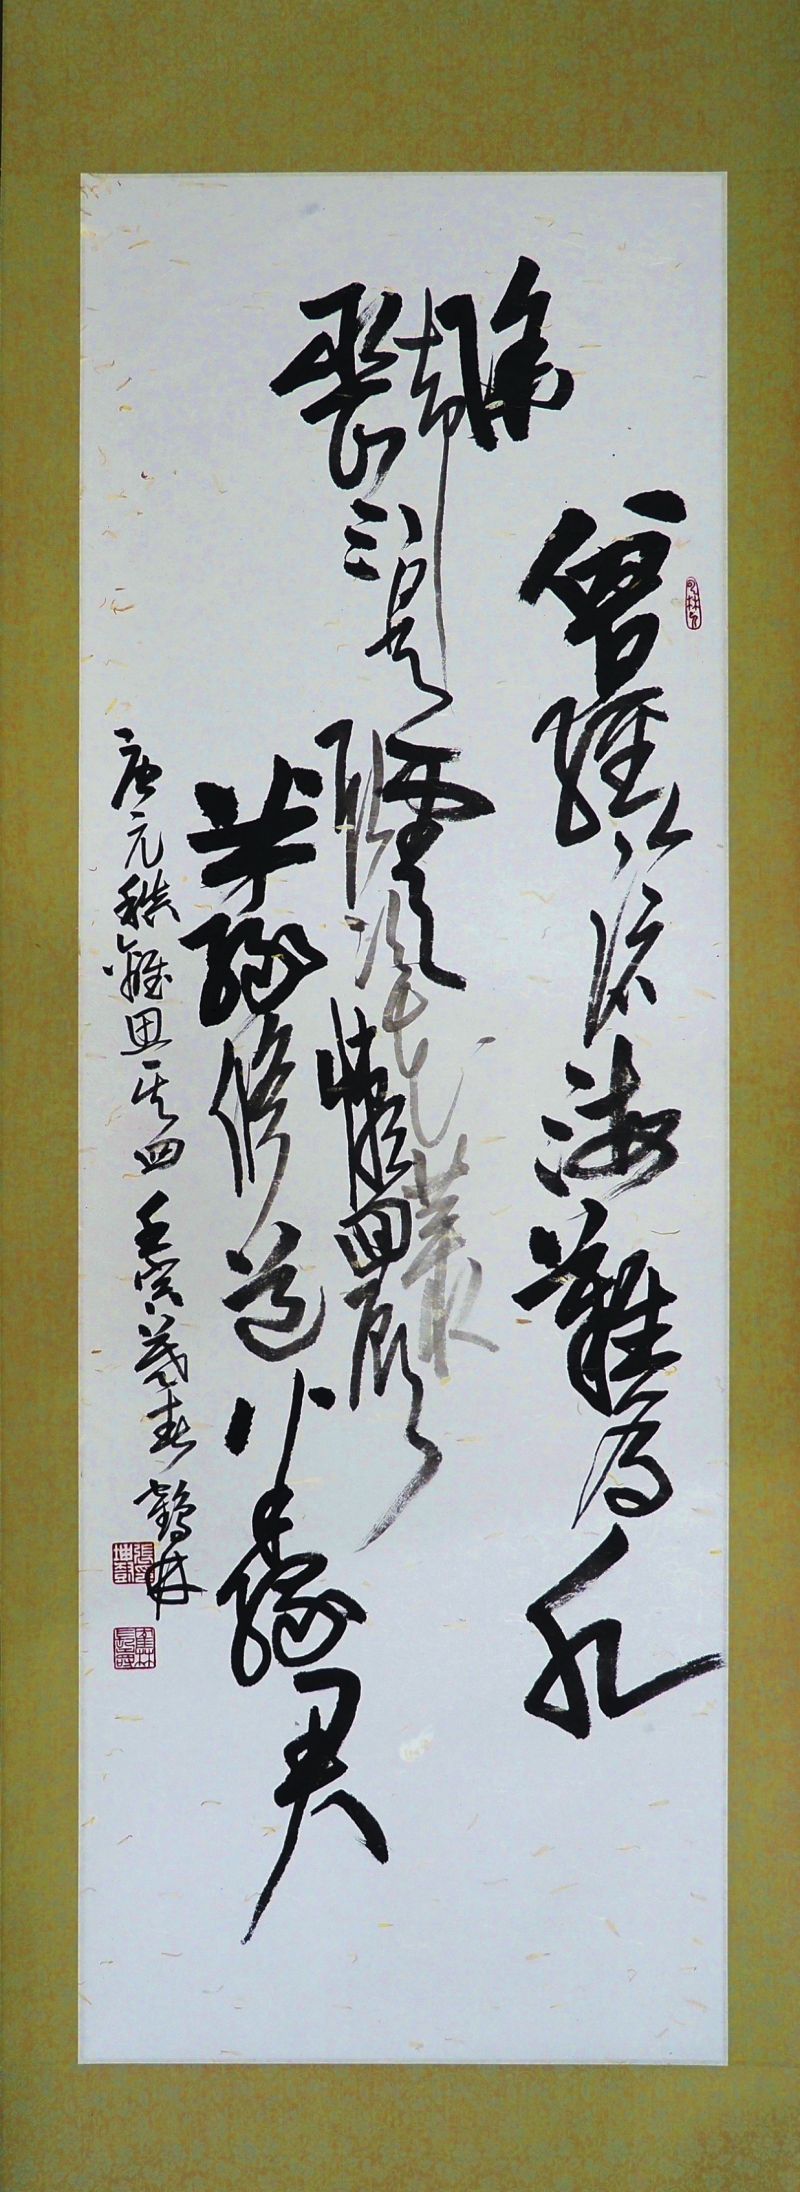 曾經滄海難為水
除却巫山不是雲
取次花叢懶回顧
半緣修道半緣君
唐元稹離思其四 壬寅暮春 鶴林